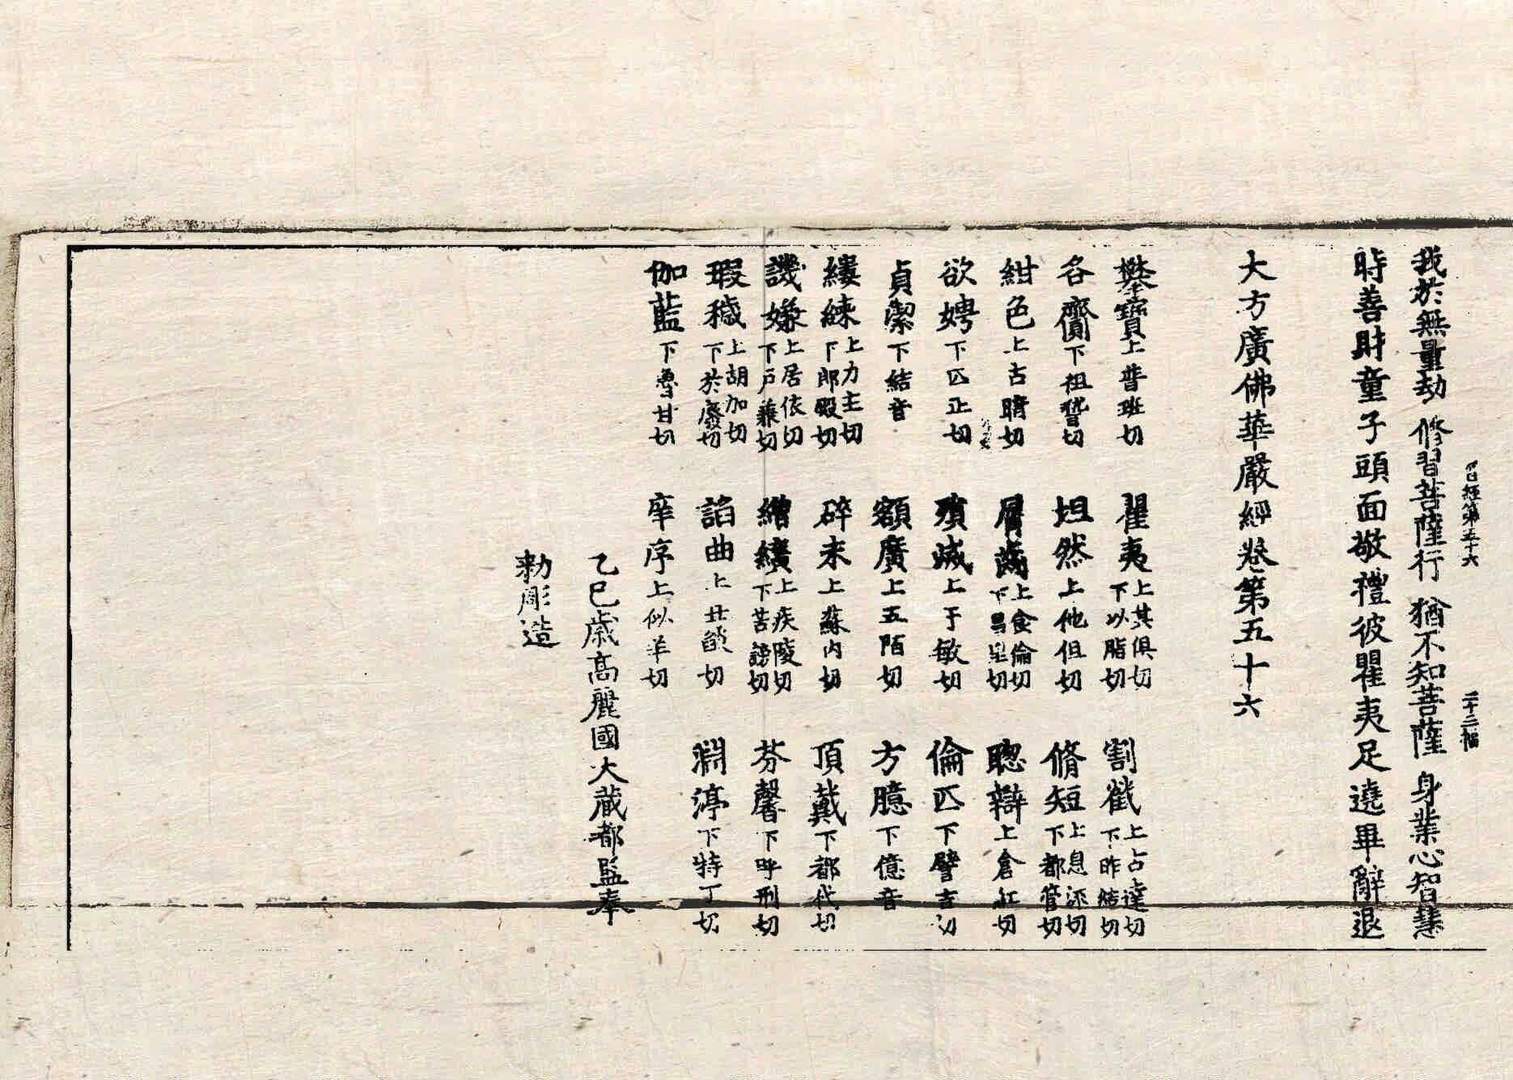 我於無量劫 修習菩薩行 猶不知菩薩 身業心智慧
時善財童子頭面敬禮彼瞿夷足遶畢辭退
大方廣佛華嚴經卷第五十六
攀寶上普班切 瞿夷上其俱切下以脂切 割截上占達切下昨結切
各齎下祖嵆切 坦然上他但切 脩短上息流切下都管切
紺色上古暗切 脣齒上食倫切下昌里切 聰辯上倉紅切
欲娉下匹正切 殞滅上于敏切 倫匹下譬吉切
貞潔下結音 額廣上五陌切 方臆下億音
縷練上力主切下郎殿切 碎末上蘇內切 頂戴下都代切
譏嫌上居依切下戶兼切 繒纊上疾陵切下苦謗切 芬馨下呼刑切
瑕穢上胡加切下於廢切 諂曲上丑琰切 淵渟下特丁切
伽藍下魯甘切 庠序上似羊切
乙巳歲高麗國大藏都監奉
勅彫造